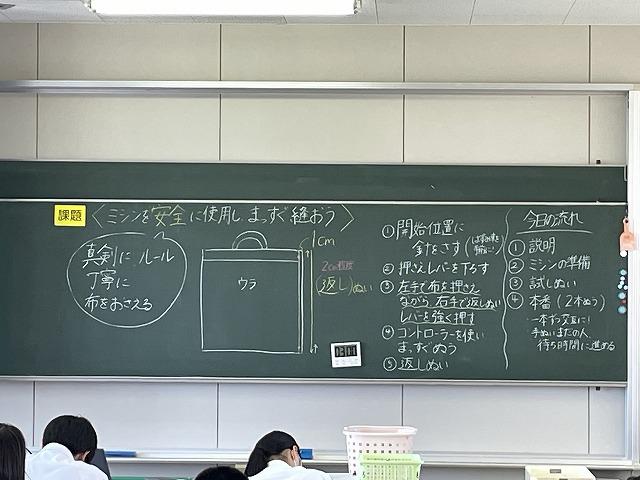 課題
〈ミシンを安全に使用し まっすぐ縫おう〉
真剣に ルール
丁寧に
布をおさえる
1cm
ウラ
2cm程度
(返し)ぬい
①開始位置に
針をさす
②押さえレバーを下ろす
③左手で布を押さえ
ながら、右手で返しぬい
レバーを強く押す
④コントローラーを使い
まっすぐぬう
⑤返しぬい
今日の流れ
①説明
②ミシンの準備
③試しぬい
④本番(2本ぬう)
一本ずつ交互に!
手ぬいまだの人、
待ち時間に進める